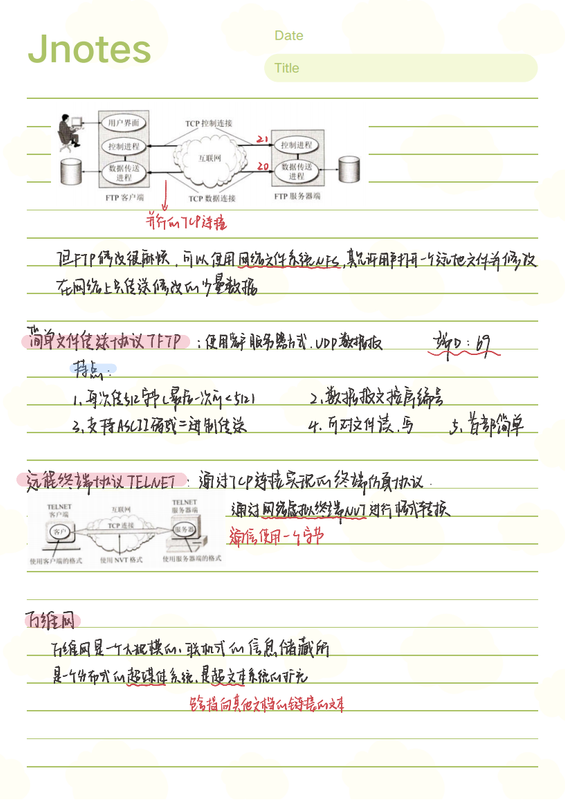 Jnotes
Date
Title
用户界面
TCP 控制连接
控制进程
21
控制进程
互联网
数据传送进程
20
数据传送进程
FTP 客户端
TCP 数据连接
FTP 服务器端
并行的TCP连接
但FTP修改很麻烦，可以使用网络文件系统NFS，其允许用户打开一个远地文件并修改
在网络上只传送修改的少量数据
简单文件传送协议 TFTP：使用客户服务器方式、UDP数据报 端口：69
特点：
1、每次传512字节(最后一次可<512) 2、数据报文按序编号
3、支持ASCII码或二进制传送 4、可对文件读、写 5、首部简单
远程终端协议TELNET：通过TCP连接实现的终端仿真协议．
TELNET 客户端
互联网
TELNET 服务器端
TCP 连接
客户
服务器
使用客户端的格式
使用 NVT 格式
使用服务器端的格式
通过网络虚拟终端NVT进行格式转换
通信使用一个字节
万维网
万维网是一个大规模的、联机式的信息储藏所
是一个分布式的超媒体系统，是超文本系统的扩充
包含指向其他文档的链接的文本